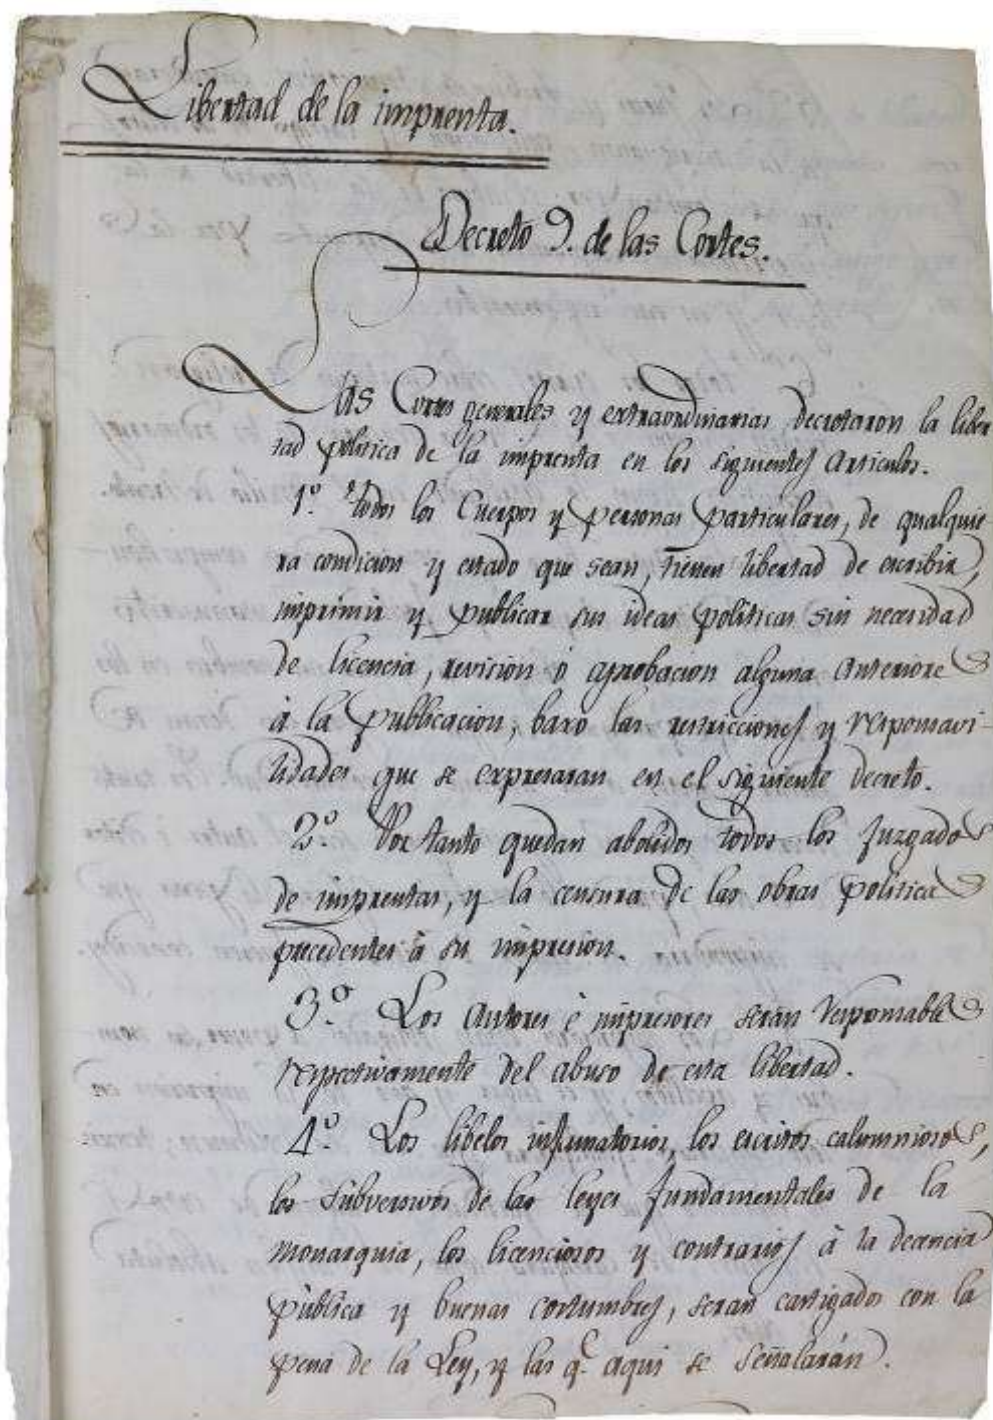 Libertad de la imprenta.
Decreto 9. de las Cortes.
Las Cortes generales y extraordinarias decretaron la liber
tad política de la imprenta en los siguientes Articulos.
1.º todos los Cuerpos y personas particulares, de qualquie
ra condicion y estado que sean, tienen libertad de escribir,
imprimir y publicar sus ideas políticas sin necesidad
de licencia, revision ó aprobacion alguna anteriores
á la publicacion, baxo las restricciones y responsavi-
lidades que se expresaran en el siguiente decreto.
2.º Por tanto quedan abolidos todos los juzgados
de imprentas, y la censura de las obras políticas
precedentes á su impresion.
3.º Los Autores é impresores serán responsables
respectivamente del abuso de esta libertad.
4.º Los libelos infamatorios, los escritos calumniosos,
los subversivos de las leyes fundamentales de la
monarquia, los licenciosos y contrarios á la decencia
pública y buenas costumbres, seran castigados con la
pena de la Ley, y las q.e aqui se señalarán.